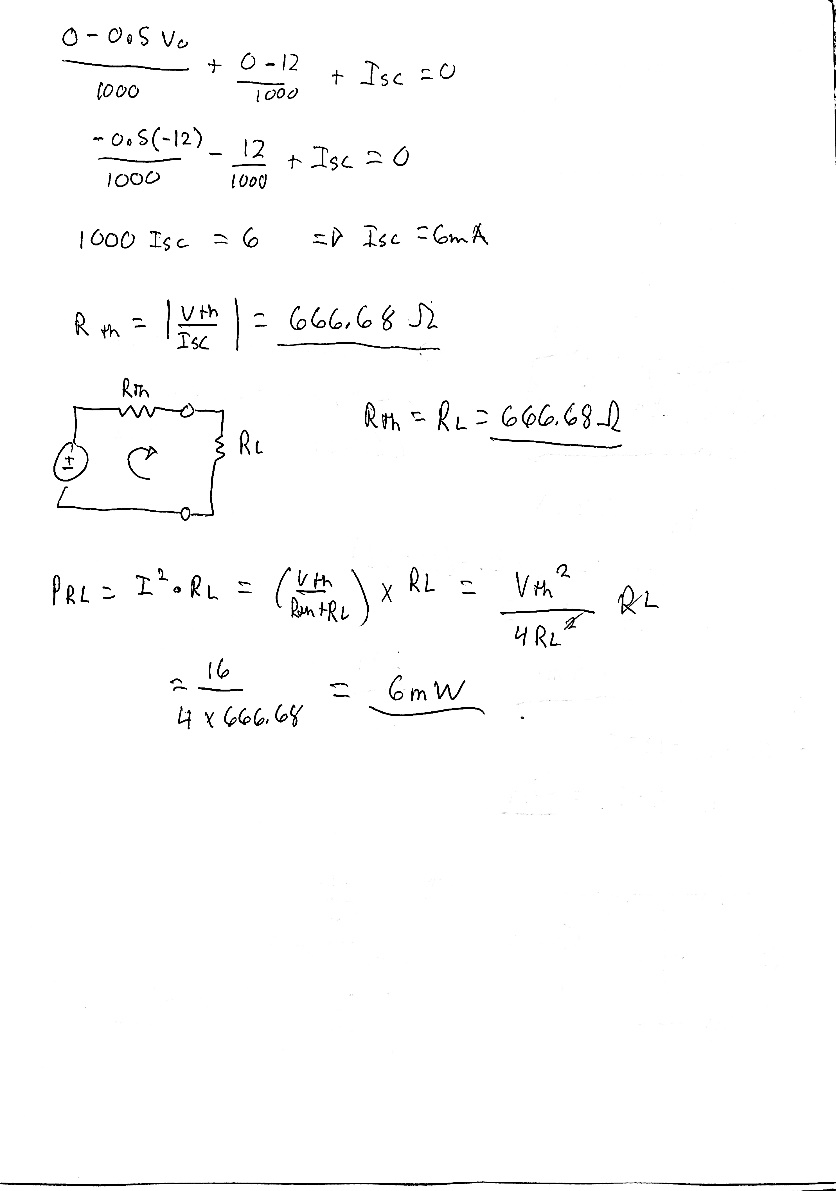 (0 - 0.5 Vo)/1000 + (0 - 12)/1000 + Isc = 0
(-0.5(-12))/1000 - 12/1000 + Isc = 0
1000 Isc = 6 => Isc = 6mA
R th = |Vth/Isc| = 666.68 Ω
Rth
Rth = RL = 666.68 Ω
± RL
PRL = I² · RL = (Vth/(Rth + RL)) x RL = Vth²/(4 RL²) RL
= 16/(4 x 666.68) = 6 mW